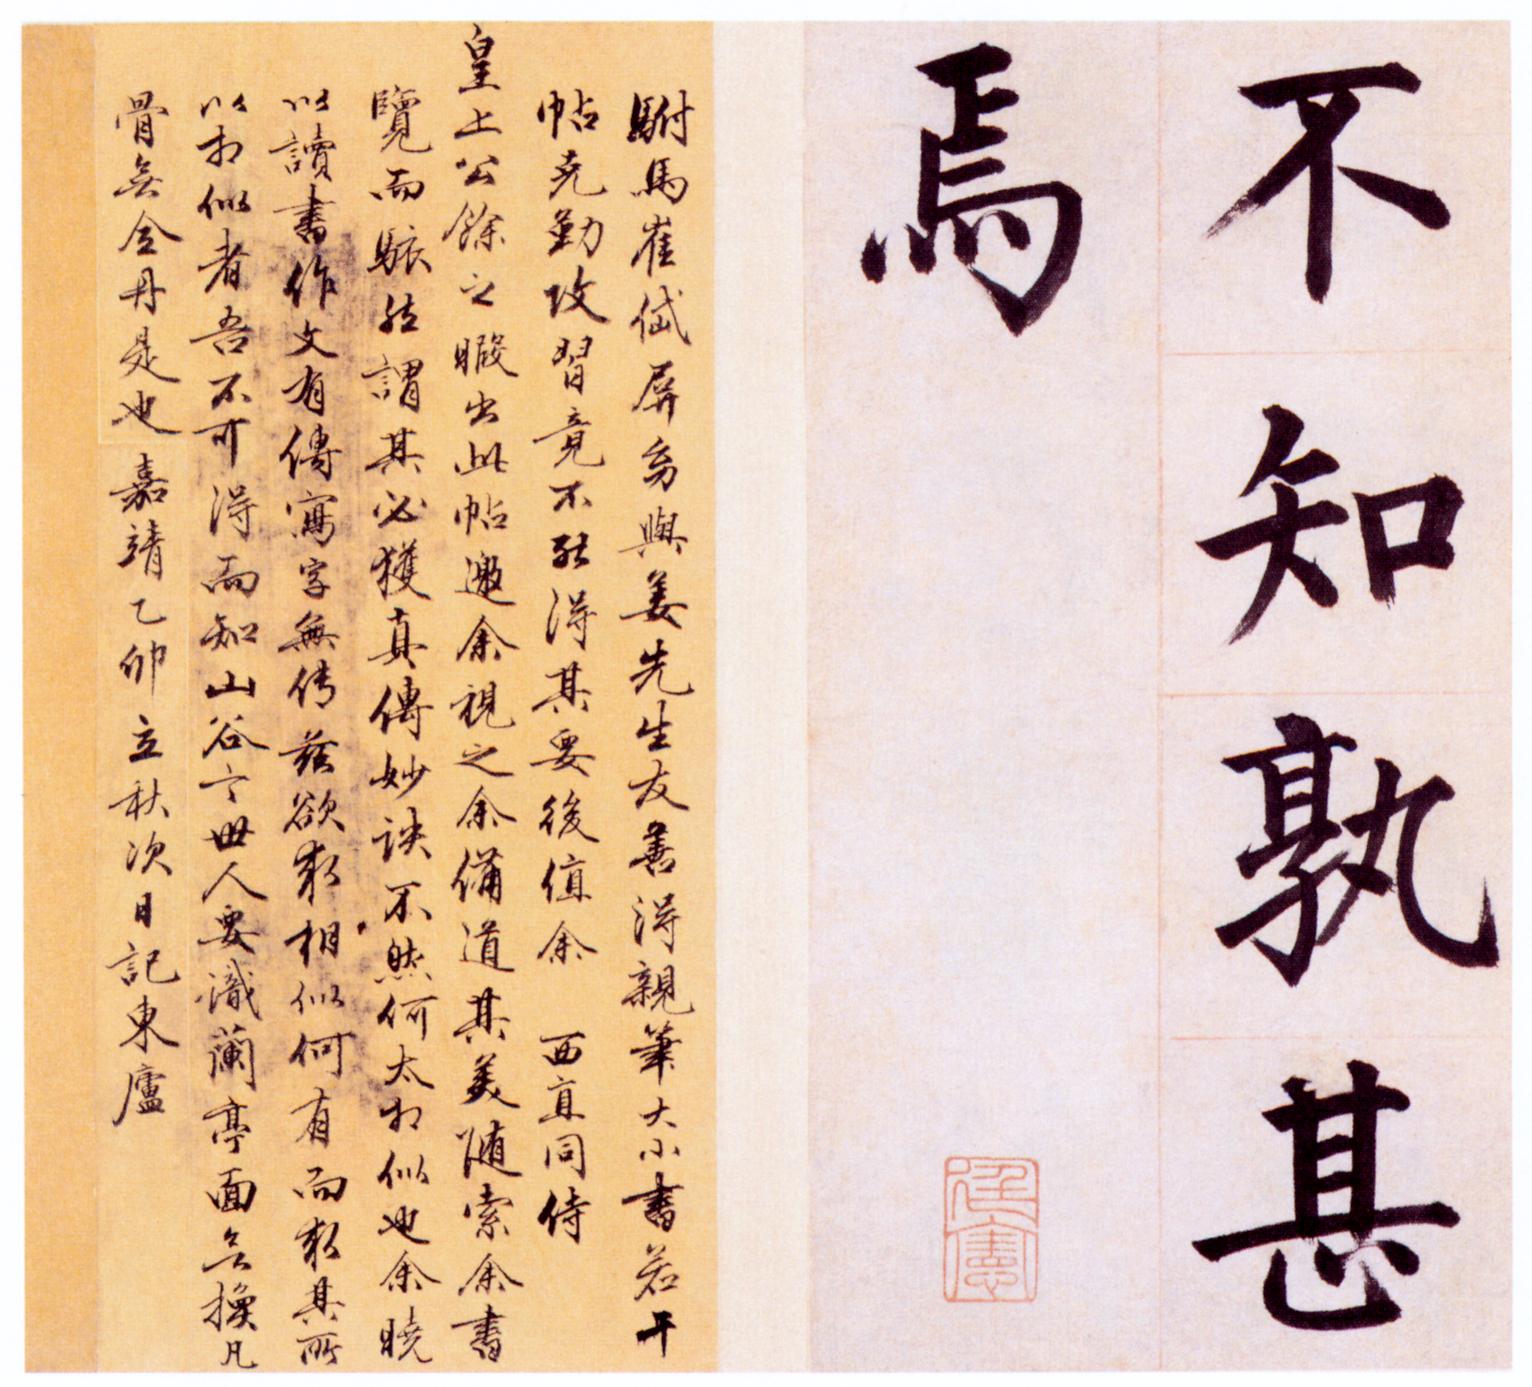 不知孰甚
焉
駙馬崔岱屏舜與姜先生友善得親筆大小書若干
帖克勤攻習竟不能得其要後值余 西直同侍
皇上公餘之暇出此帖邀余視之余備道其美随索余書
覽而駭然謂其必獲真傳妙訣不然何太相似也余曉
以讀書作文有傳寫字無传茲欲求相似何有而求其所
以相似者吾不可得而知山谷云世人要識蘭亭面無換凡
骨無金丹是也 嘉靖乙卯立秋次日記東廬